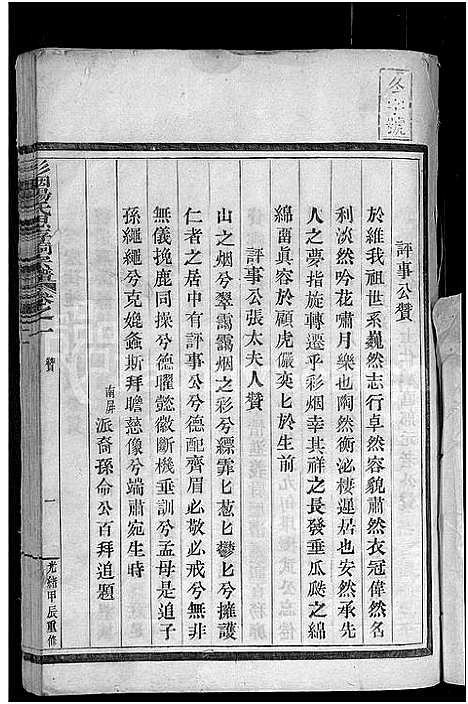 冬字號
評事公贊
於維我祖世系巍然志行卓然容貌肅然衣冠偉然名
利淡然吟花嘯月樂也陶然衡泌棲遲居也安然承先
人之夢指旋轉遷乎彩烟幸其祥之長發垂瓜瓞之綿
綿茵眞容於顧虎儼奕匕於生前
評事公張太夫人贊
山之烟兮翠靄靄烟之彩兮縹霏匕蔥匕鬱匕兮擁護
仁者之居中有評事公兮德配齊眉必敬必戒兮無非
無儀挽鹿同操兮德曜懿徽斷機垂訓兮孟母是追子
孫繩繩兮克媲螽斯拜瞻慈像兮端肅宛生時
南屏派裔孫命公百拜追題
贊
一
光緒甲辰重修